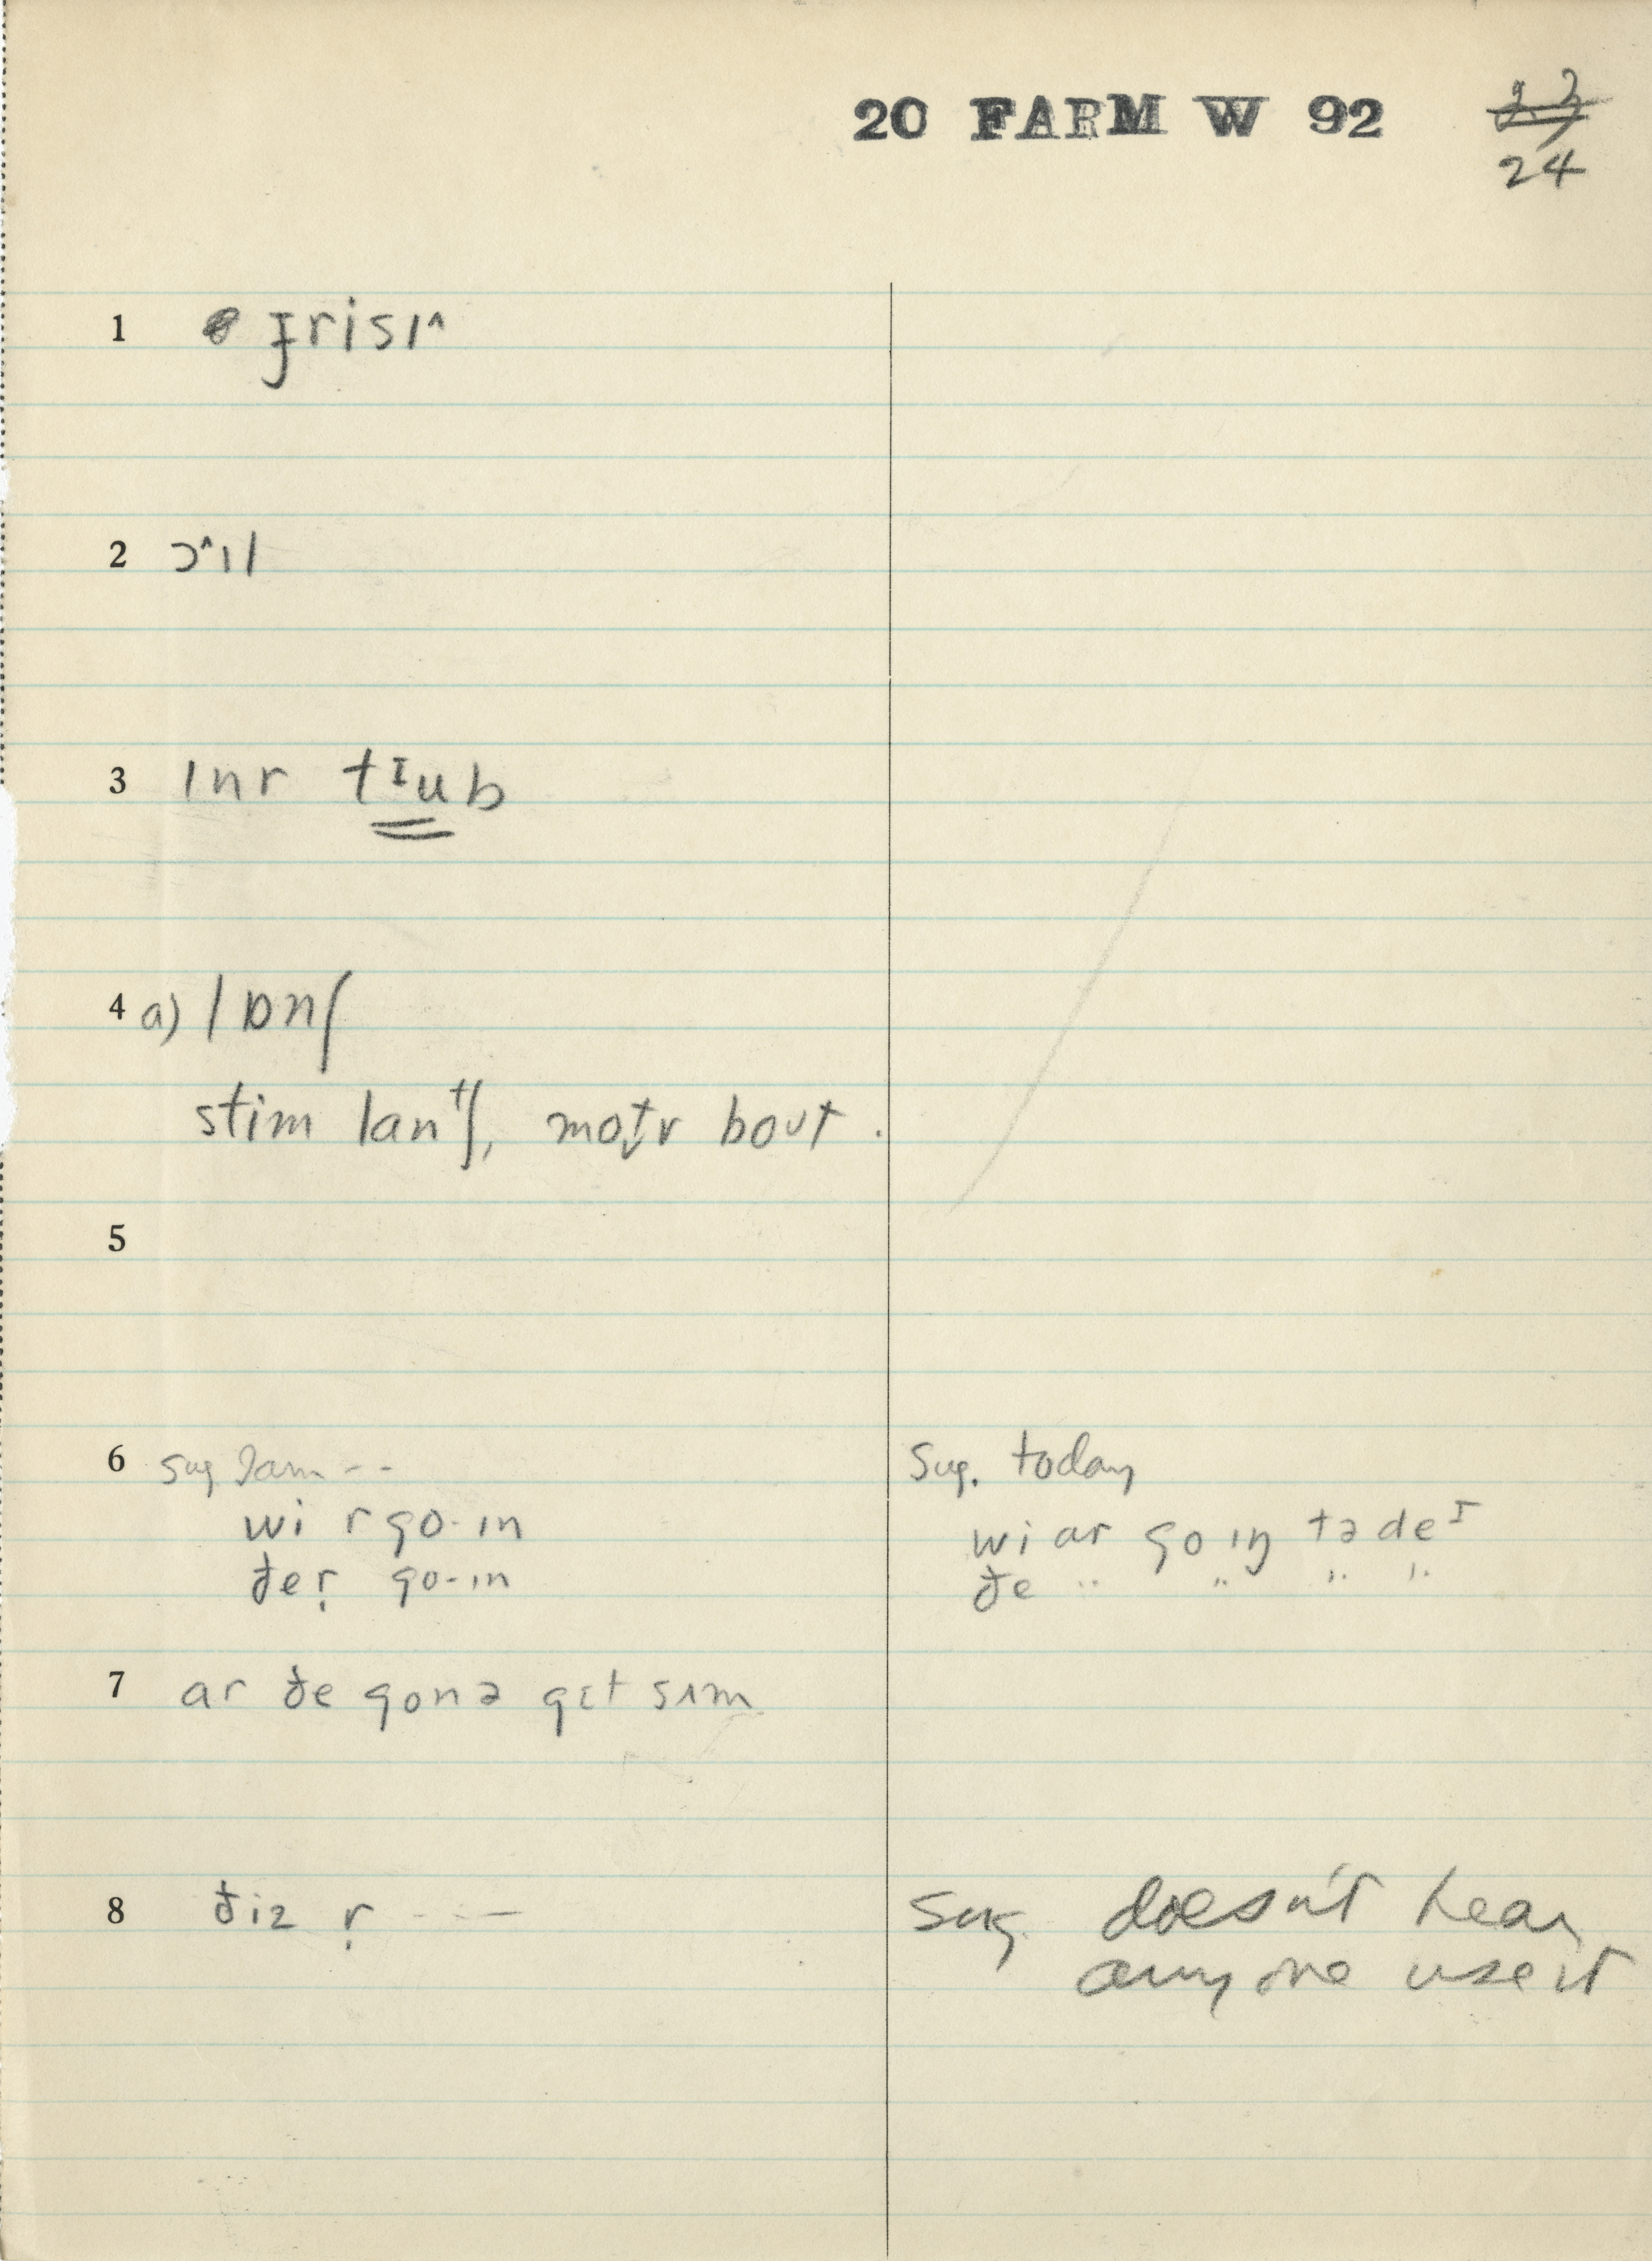 20 FARM W 92
23
24
1 ɟrisɪ˄
2 ɔ˄ɪl
3 ɪnr tᶦub
4 a) lɒnʃ
stim lanᵗʃ, mot̬r boʊt.
5
6 sug I am -- sug. today
wi r go-ɪn wi ar go ɪŋ tə deᶦ
ðer̩ go-ɪn ðe " " " "
7 ar ðe gonə gɛt sʌm
8 ðiz r̩ --- sug. doesn't hear
anyone use it